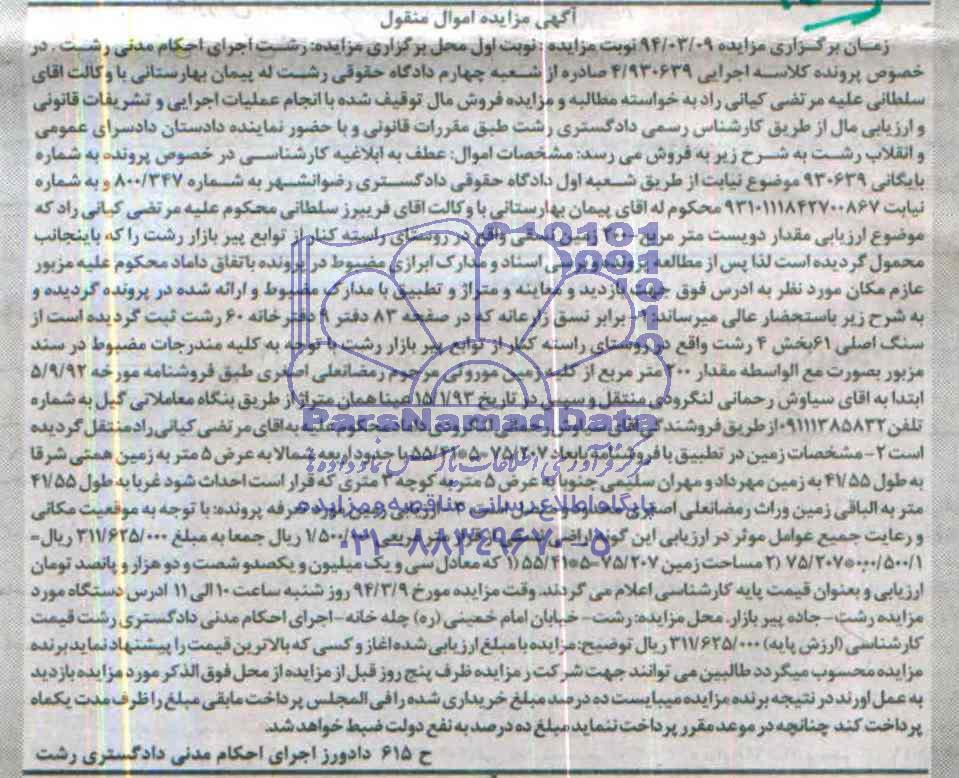 آگهی مزایده اموال منقول
زمان برگزاری مزایده ۹۴/۰۳/۰۹ نوبت مزایده : نوبت اول محل برگزاری مزایده: رشت اجرای احکام مدنی رشت . در
خصوص پرونده کلاسه اجرایی ۴/۹۳۰۶۳۹ صادره از شعبه چهارم دادگاه حقوقی رشت له پیمان بهارستانی با وکالت اقای
سلطانی علیه مرتضی کیانی راد به خواسته مطالبه و مزایده فروش مال توقیف شده با انجام عملیات اجرایی و تشریفات قانونی
و ارزیابی مال از طریق کارشناس رسمی دادگستری رشت طبق مقررات قانونی و با حضور نماینده دادستان دادسرای عمومی
و انقلاب رشت به شرح زیر به فروش می رسد: مشخصات اموال: عطف به ابلاغیه کارشناسی در خصوص پرونده به شماره
بایگانی ۹۳۰۶۳۹ موضوع نیابت از طریق شعبه اول دادگاه حقوقی دادگستری رضوانشهر به شماره ۸۰۰/۳۴۷ و به شماره
نیابت ۹۳۱۰۱۱۱۸۴۲۷۰۰۸۶۷ محکوم له اقای پیمان بهارستانی با وکالت اقای فریبرز سلطانی محکوم علیه مرتضی کیانی راد که
موضوع ارزیابی مقدار دویست متر مربع ۲۰۰ زمین نسقی واقع در روستای راسته کنار از توابع پیر بازار رشت را که باینجانب
محمول گردیده است لذا پس از مطالعه پرونده و بررسی اسناد و مدارک ابرازی مضبوط در پرونده باتفاق داماد محکوم علیه مزبور
عازم مکان مورد نظر به ادرس فوق جهت بازدید و معاینه و متراژ و تطبیق با مدارک مضبوط و ارائه شده در پرونده گردیده و
به شرح زیر باستحضار عالی میرساند: ۱- برابر نسق زارعانه که در صفحه ۸۳ دفتر ۹ دفتر خانه ۶۰ رشت ثبت گردیده است از
سنگ اصلی ۶۱ بخش ۴ رشت واقع در روستای راسته کنار از توابع پیر بازار رشت با توجه به کلیه مندرجات مضبوط در سند
مزبور بصورت مع الواسطه مقدار ۲۰۰ متر مربع از کلیه زمین موروثی مرحوم رمضانعلی اصغری طبق فروشنامه مورخه ۵/۹/۹۲
ابتدا به اقای سیاوش رحمانی لنگرودی منتقل و سپس در تاریخ ۱۵/۱/۹۳ عینا همان متراژ از طریق بنگاه معاملاتی گیل به شماره
تلفن ۰۹۱۱۱۳۸۵۸۳۲ از طریق فروشندگی اقای سیاوش رحمانی لنگرودی داماد محکوم علیه به اقای مرتضی کیانی راد منتقل گردیده
است ۲- مشخصات زمین در تطبیق با فروشنامه بابعاد ۲۰۷/۷۵=۵*۴۱/۵۵ با حدود اربعه شمالا به عرض ۵ متر به زمین همتی شرقا
به طول ۴۱/۵۵ به زمین مهرداد و مهران سلیمی جنوبا به عرض ۵ متر به کوچه ۳ متری که قرار است احداث شود غربا به طول ۴۱/۵۵
متر به الباقی زمین وراث رمضانعلی اصغری محدود و متصل است ۳- ارزیابی زمین مورد معرفه پرونده: با توجه به موقعیت مکانی
و رعایت جمیع عوامل موثر در ارزیابی این گونه اراضی نسقی از قرار متر مربعی ۱/۵۰۰/۰۰۰ ریال جمعا به مبلغ ۳۱۱/۶۲۵/۰۰۰ ریال=
۷۵/۲۰۷*۰۰۰/۵۰۰/۱ (۲ مساحت زمین ۷۵/۲۰۷=۵*۵۵/۴۱ (۱ که معادل سی و یک میلیون و یکصدو شصت و دو هزار و پانصد تومان
ارزیابی و بعنوان قیمت پایه کارشناسی اعلام می گردند. وقت مزایده مورخ ۹۴/۳/۹ روز شنبه ساعت ۱۰ الی ۱۱ ادرس دستگاه مورد
مزایده رشت- جاده پیر بازار. محل مزایده: رشت- خیابان امام خمینی (ره) چله خانه-اجرای احکام مدنی دادگستری رشت قیمت
کارشناسی (ارزش پایه) ۳۱۱/۶۲۵/۰۰۰ ریال توضیح: مزایده با مبلغ ارزیابی شده اغاز و کسی که بالاترین قیمت را پیشنهاد نماید برنده
مزایده محسوب میگردد طالبین می توانند جهت شرکت ر مزایده ظرف پنج روز قبل از مزایده از محل فوق الذکر مورد مزایده بازدید
به عمل اورند در نتیجه برنده مزایده میبایست ده درصد مبلغ خریداری شده را فی المجلس پرداخت مابقی مبلغ را ظرف مدت یکماه
پرداخت کند چنانچه در موعد مقرر پرداخت ننماید مبلغ ده درصد به نفع دولت ضبط خواهد شد.
ح ۶۱۵ دادورز اجرای احکام مدنی دادگستری رشت
ParsNamadData
پایگاه اطلاع رسانی مناقصه و مزایده
۰۲۱-۸۸۳۴۹۶۷۰-۵